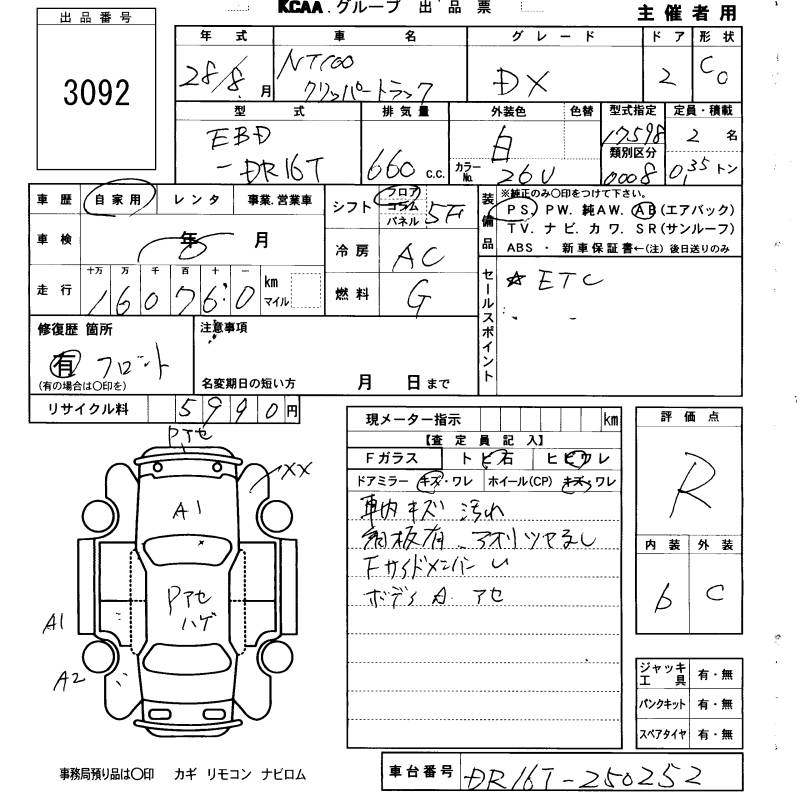 KCAA.グループ 出品票
主催者用
出品番号
3092
年式 車名 グレード ドア 形状
28/8月 NT100 クリッパートラック DX 2 Co
型式 排気量 外装色 色替 型式指定 定員・積載
EBD-DR16T 660 c.c. 白 17598 2名
カラーNo. 26U 類別区分 0008 0.35トン
車歴 自家用 レンタ 事業.営業車
シフト フロア コラム パネル 5F
装備品 ※純正のみ〇印をつけて下さい。
PS. PW. 純AW. AB(エアバック)
TV. ナビ. カワ. SR(サンルーフ)
ABS ・ 新車保証書←(注)後日送りのみ
車検 年 月
冷房 AC
走行 十万 万 千 百 十 一
160760 km マイル
燃料 G
セールスポイント
☆ETC
修復歴 箇所
有 フロント
(有の場合は〇印を)
注意事項
名変期日の短い方 月 日まで
リサイクル料 5990円
現メーター指示 km
【査定員記入】
Fガラス トビ石 ヒビワレ
ドアミラー キズ・ワレ ホイール(CP) キズ・ワレ
車内キズ 汚れ
荷板有 アオリツヤなし
Fサイドメンバー
ボディA. アセ
評価点
R
内装 外装
6 C
Pアセ
XX
A1
Pアセ
ハゲ
A1
A2
ジャッキ工具 有・無
パンクキット 有・無
スペアタイヤ 有・無
事務局預り品は〇印 カギ リモコン ナビロム
車台番号 DR16T-250252